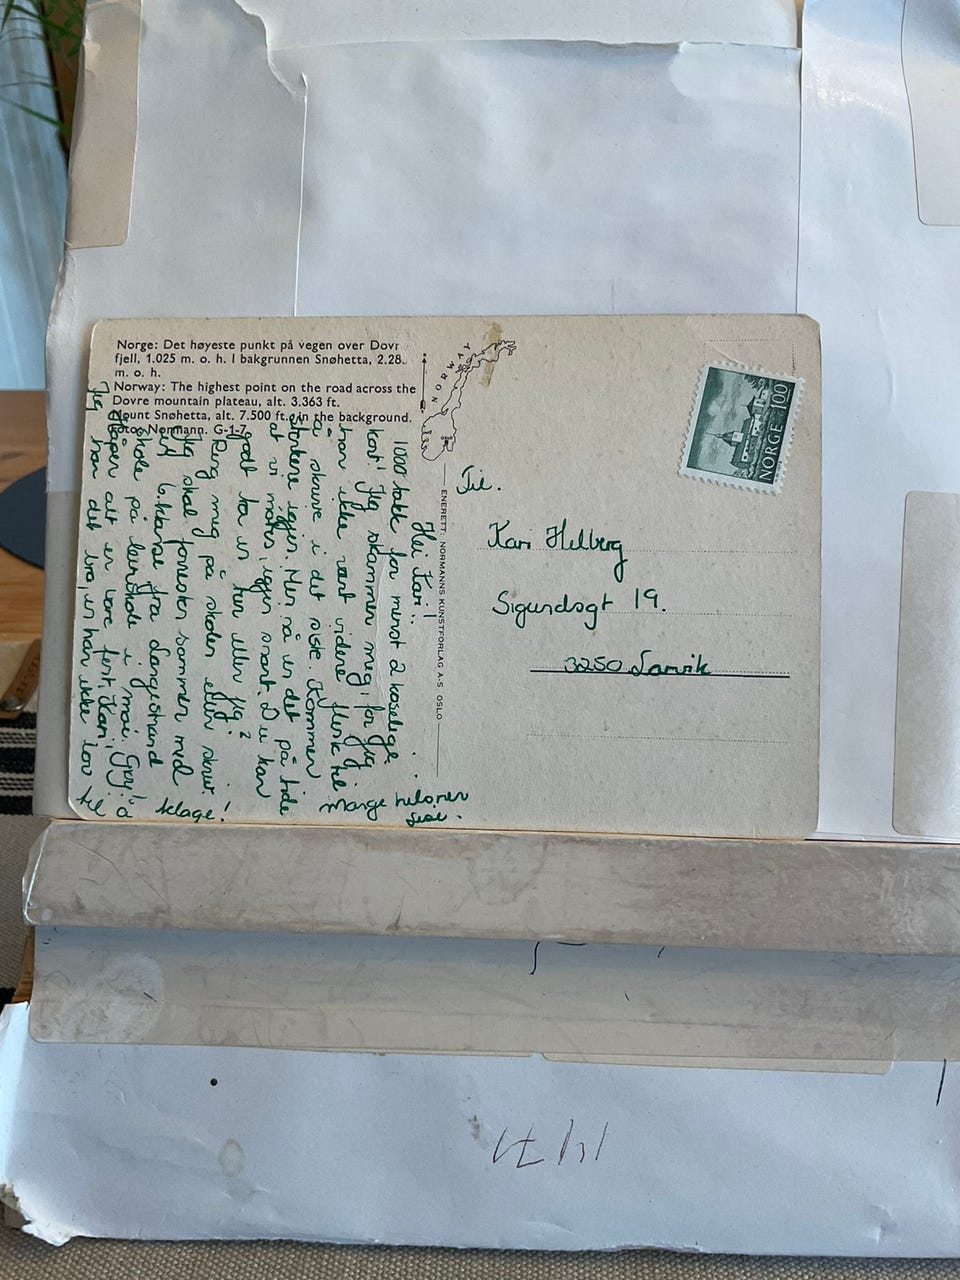 Norge: Det høyeste punkt på vegen over Dovr
fjell, 1.025 m. o. h. I bakgrunnen Snøhetta, 2.28
m. o. h.
Norway: The highest point on the road across the
Dovre mountain plateau, alt. 3.363 ft.
Mount Snøhetta, alt. 7.500 ft., in the background.
Foto: Normann. G-1-7
NORWAY
ENERETT: NORMANNS KUNSTFORLAG A-S OSLO
Hei Kari!
1000 takk for minst 2 koselige
kort! Jeg skammer meg, for jeg
har ikke vært videre flink til
å skrive i det siste. Kommer
sterkere igjen. Men nå er det på tide
at vi møtes igjen snart. Du kan
godt ta en tur eller jeg?
Ring meg på skolen eller skriv.
Jeg skal forresten sammen med
ei 6.klasse fra Langestrand
skole på leirskole i mai. Gøy!
Håper alt er bare fest, Kari,
har du det bra, en har ikke lov til
å klage!
Mange hilsner
Til.
Kari Helberg
Sigurdsgt 19.
3250 Larvik
NORGE 100